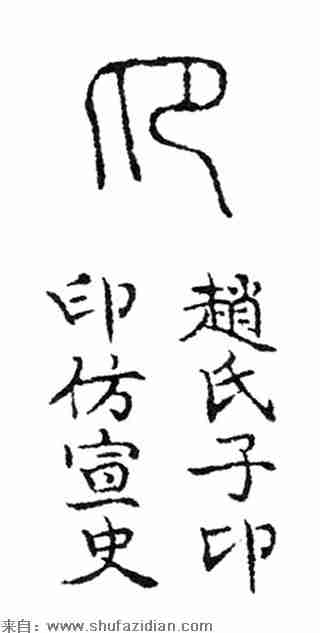 印
趙氏子印
印仿宣史
来自：www.shufazidian.com